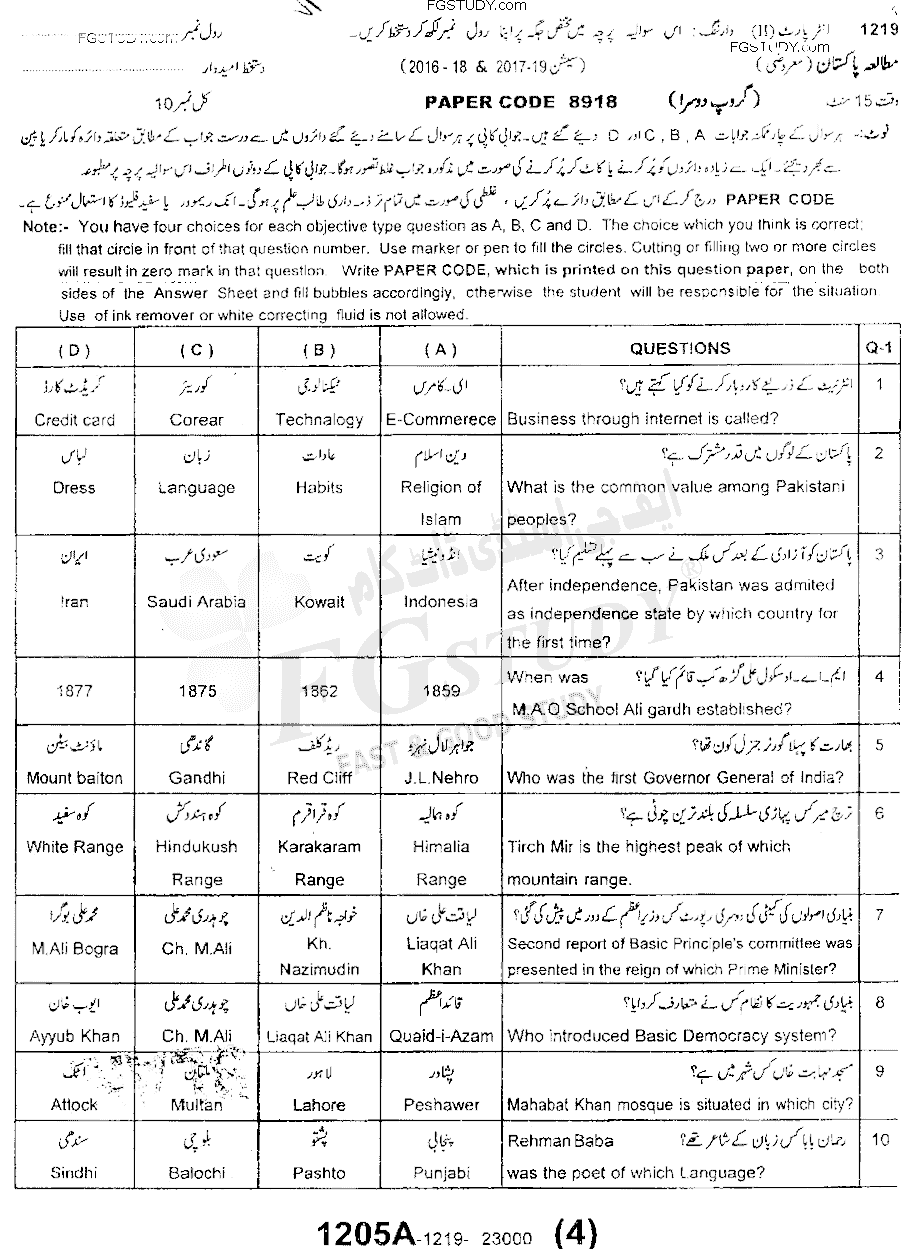 FGSTUDY.com
1219 انٹر پارٹ (II) وارننگ: اس سوالیہ پرچہ میں مختص جگہ پر اپنا رول نمبر لکھ کر دستخط کریں۔ رول نمبر FGSTUDY.com
FGSTUDY.com
مطالعہ پاکستان (معروضی) (سیشن 2016 - 18 & 2017-19) دستخط امیدوار
وقت 15 منٹ (گروپ دوسرا) PAPER CODE 8918 کل نمبر 10
نوٹ:- ہر سوال کے چار ممکنہ جوابات A , B , C اور D دیئے گئے ہیں۔ جوابی کاپی پر ہر سوال کے سامنے دیئے گئے دائروں میں سے درست جواب کے مطابق متعلقہ دائرہ کو مارکر یا پین
سے بھر دیجئے۔ ایک سے زیادہ دائروں کو پُر کرنے یا کاٹ کر پُر کرنے کی صورت میں مذکورہ جواب غلط تصور ہوگا۔ جوابی کاپی کے دونوں اطراف اس سوالیہ پرچہ پر مطبوعہ
PAPER CODE درج کرکے اس کے مطابق دائرے پُر کریں، غلطی کی صورت میں تمام تر ذمہ داری طالب علم پر ہوگی۔ انک ریموور یا سفید فلیوڈ کا استعمال ممنوع ہے۔
Note:- You have four choices for each objective type question as A, B, C and D. The choice which you think is correct;
fill that circle in front of that question number. Use marker or pen to fill the circles. Cutting or filling two or more circles
will result in zero mark in that question. Write PAPER CODE, which is printed on this question paper, on the both
sides of the Answer Sheet and fill bubbles accordingly, otherwise the student will be responsible for the situation.
Use of ink remover or white correcting fluid is not allowed.
( D ) ( C ) ( B ) ( A ) QUESTIONS Q-1
کریڈٹ کارڈ کوریئر ٹیکنالوجی ای۔کامرس انٹرنیٹ کے ذریعے کاروبار کرنے کو کیا کہتے ہیں؟ 1
Credit card Corear Technalogy E-Commerece Business through internet is called?
لباس زبان عادات دین اسلام پاکستان کے لوگوں میں قدر مشترک ہے؟ 2
Dress Language Habits Religion of What is the common value among Pakistani
Islam peoples?
ایران سعودی عرب کویت انڈونیشیا پاکستان کو آزادی کے بعد کس ملک نے سب سے پہلے تسلیم کیا؟ 3
Iran Saudi Arabia Kowait Indonesia After independence, Pakistan was admited
as independence state by which country for
the first time?
1877 1875 1862 1859 When was ایم۔اے۔او سکول علی گڑھ کب قائم کیا گیا؟ 4
M.A.O School Ali gardh established?
ماؤنٹ بیٹن گاندھی ریڈ کلف جواہر لال نہرو بھارت کا پہلا گورنر جنرل کون تھا؟ 5
Mount baiton Gandhi Red Cliff J.L.Nehro Who was the first Governor General of India?
کوہ سفید کوہ ہندوکش کوہ قراقرم کوہ ہمالیہ ترچ میر کس پہاڑی سلسلہ کی بلند ترین چوٹی ہے؟ 6
White Range Hindukush Karakaram Himalia Tirch Mir is the highest peak of which
Range Range Range mountain range.
محمد علی بوگرا چوہدری محمد علی خواجہ ناظم الدین لیاقت علی خاں بنیادی اصولوں کی کمیٹی کی دوسری رپورٹ کس وزیراعظم کے دور میں پیش کی گئی؟ 7
M.Ali Bogra Ch. M.Ali Kh. Liaqat Ali Second report of Basic Principle's committee was
Nazimudin Khan presented in the reign of which Prime Minister?
ایوب خان چوہدری محمد علی لیاقت علی خاں قائد اعظم بنیادی جمہوریت کا نظام کس نے متعارف کروایا؟ 8
Ayyub Khan Ch. M.Ali Liaqat Ali Khan Quaid-i-Azam Who introduced Basic Democracy system?
اٹک ملتان لاہور پشاور مسجد مہابت خاں کس شہر میں ہے؟ 9
Attock Multan Lahore Peshawer Mahabat Khan mosque is situated in which city?
سندھی بلوچی پشتو پنجابی Rehman Baba رحمان بابا کس زبان کے شاعر تھے؟ 10
Sindhi Balochi Pashto Punjabi was the poet of which Language?
ایف جی اسٹڈی ڈاٹ کام
FGSTUDY®
FAST & GOOD STUDY
1205A-1219- 23000 (4)